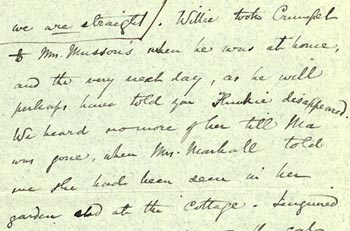 we are straight. Willie took Crumpet
to Mrs. Mussons when he was at home,
and the very next day, as he will
perhaps have told you Huckie disappeared.
We heard no more of her till Ma
was gone, when Mrs. Marhall told
me she had been seen in her
garden and at the Cottage. Inquired